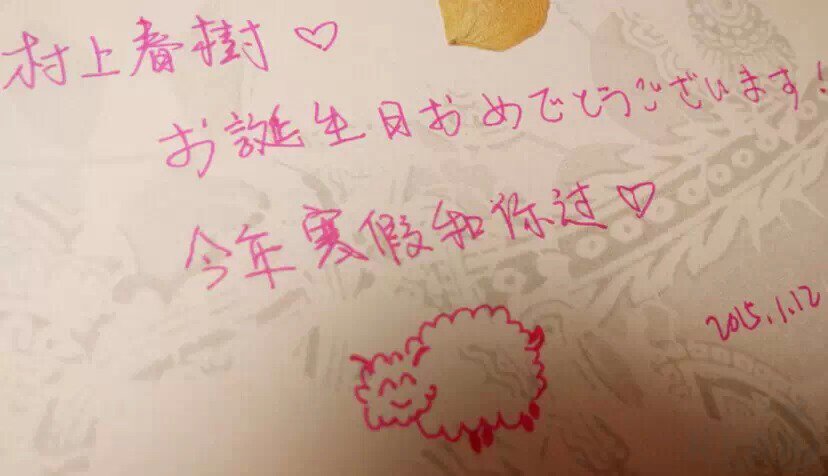 村上春樹♡
お誕生日おめでとうございます!
今年寒假和你过♡
2015.1.12